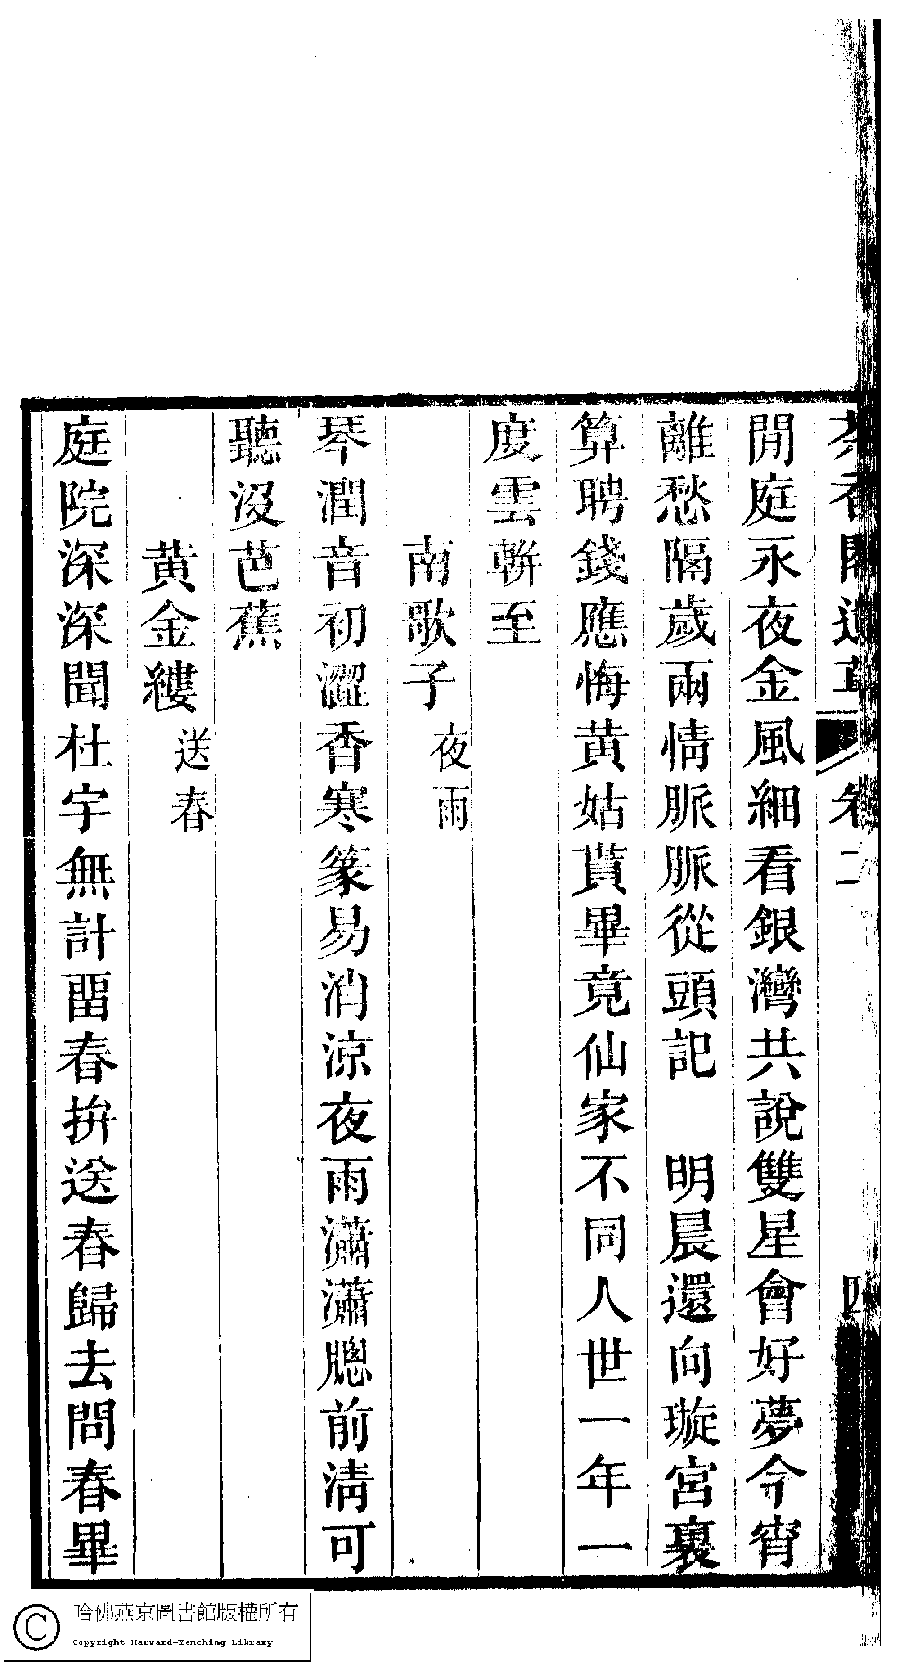 茶香閣遺草 卷二 四
閒庭永夜金風細看銀灣共說雙星會好夢今宵
離愁隔歲兩情脈脈從頭記　明晨還向璇宮裏
算聘錢應悔黃姑貰畢竟仙家不同人世一年一
度雲軿至
南歌子 夜雨
琴潤音初澀香寒篆易消涼夜雨瀟瀟牎前淸可
聽沒芭蕉
黃金縷 送春
庭院深深聞杜宇無計畱春拚送春歸去問春畢
哈佛燕京圖書館版權所有
Copyright Harvard-Yenching Library